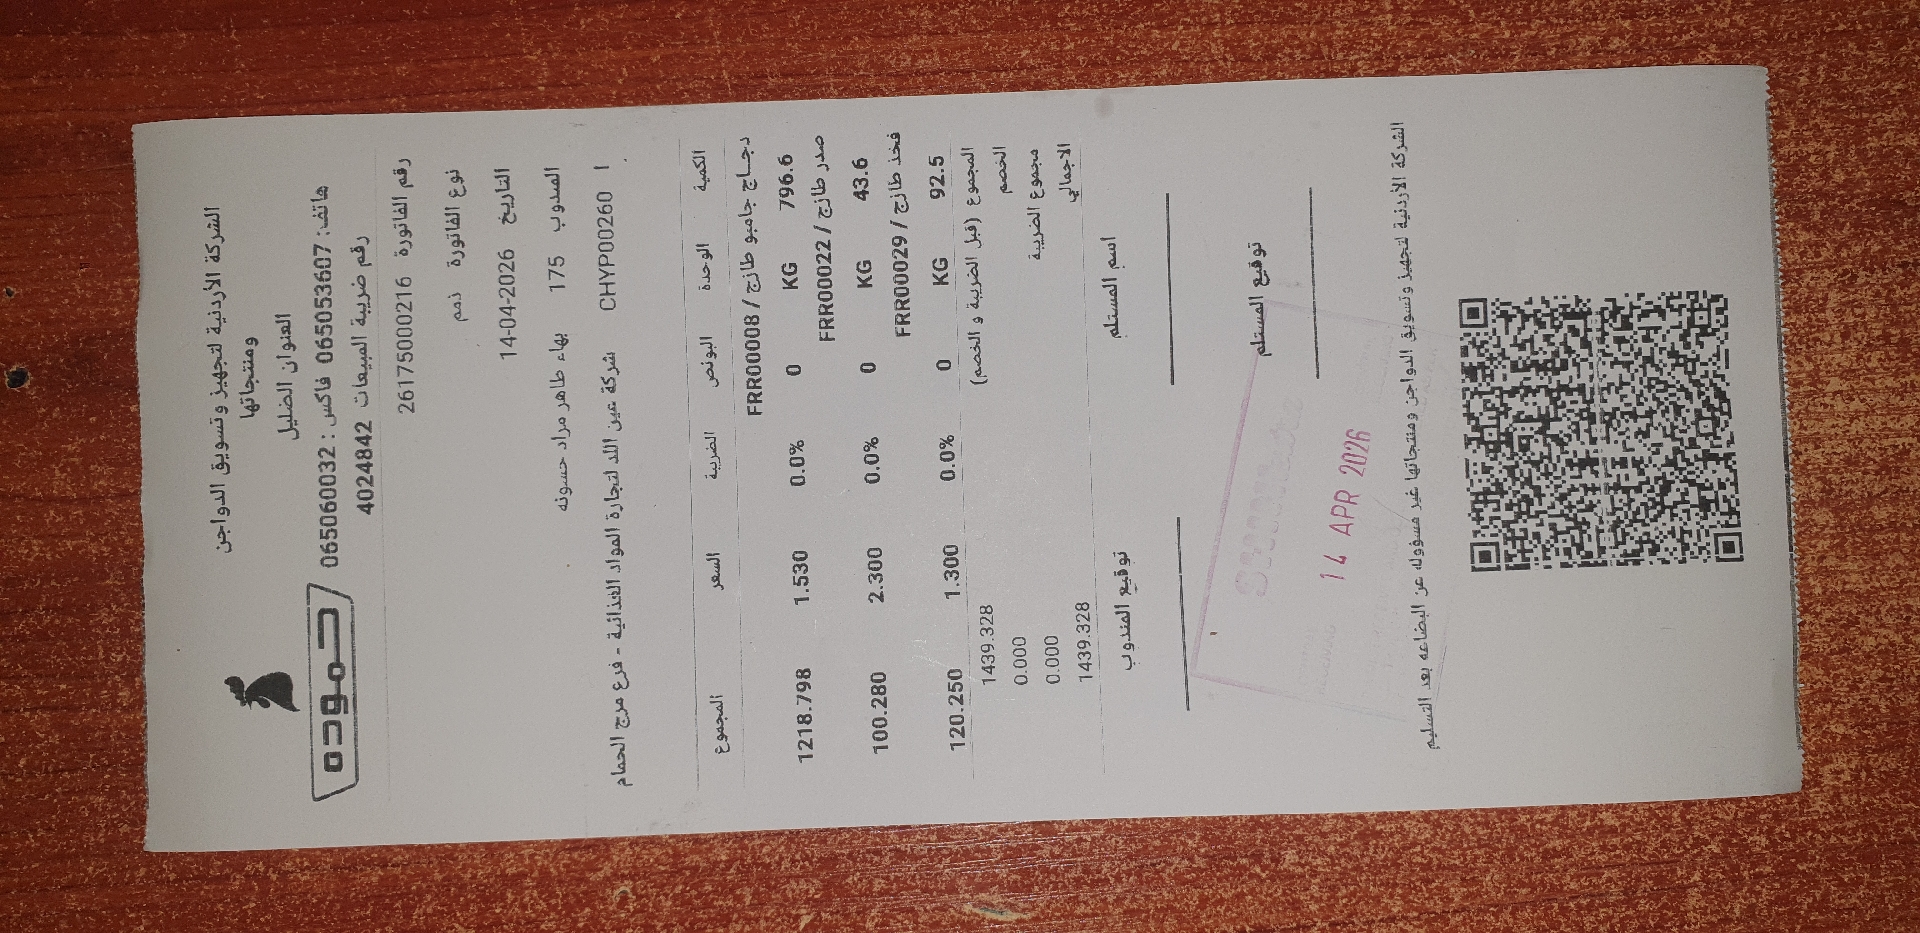 الشركة الأردنية لتجهيز وتسويق الدواجن
ومنتجاتها
العنوان الضليل
حموده
هاتف: 065053607 فاكس : 065060032
رقم ضريبة المبيعات 4024842
رقم الفاتورة 26175000216
نوع الفاتورة ذمم
التاريخ 14-04-2026
المندوب 175 بهاء طاهر مراد حسونه
ا CHYP00260 شركة عين اللد لتجارة المواد الغذائية - فرع مرج الحمام
الكمية الوحدة البونص الضريبة السعر المجموع
دجاج جامبو طازج / FRR00008
796.6 KG 0 0.0% 1.530 1218.798
صدر طازج / FRR00022
43.6 KG 0 0.0% 2.300 100.280
فخذ طازج / FRR00029
92.5 KG 0 0.0% 1.300 120.250
المجموع (قبل الضريبة و الخصم) 1439.328
الخصم 0.000
مجموع الضريبة 0.000
الاجمالي 1439.328
اسم المستلم توقيع المندوب
توقيع المستلم
14 APR 2026
الشركة الأردنية لتجهيز وتسويق الدواجن ومنتجاتها غير مسؤوله عن البضاعه بعد التسليم